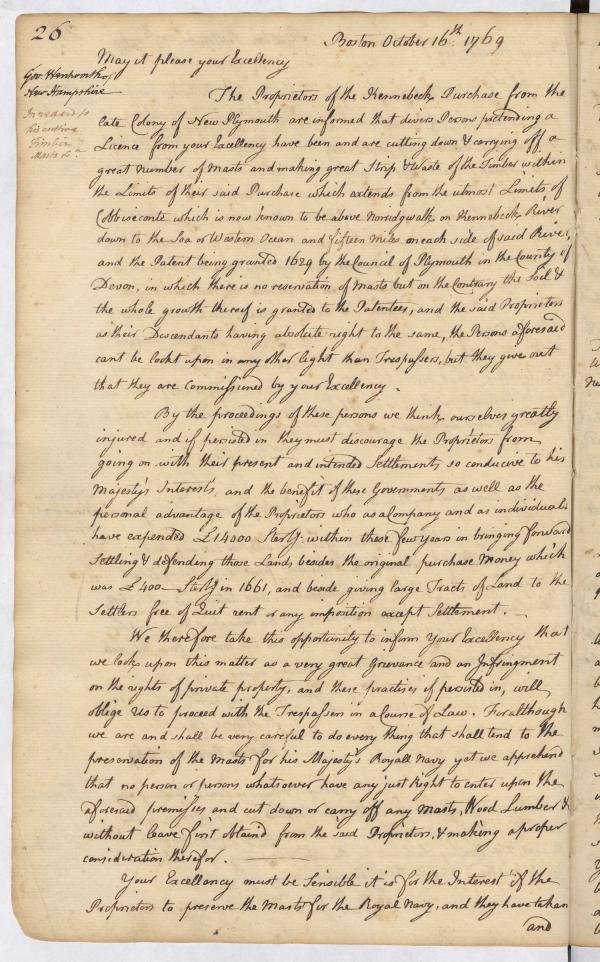 26
Boston October 16th. 1769
May it please your Excellency
Gov. Wentworth of
New Hampshire
In regard to
his cutting
Timber
Masts &c
The Proprietors of the Kennebeck Purchase from the
late Colony of New Plymouth are informed that divers Persons pretending a
Licence from your Excellency have been and are cutting down & carrying off a
great Number of Masts and making great Strip & Waste of the Timber within
the Limits of their said Purchase which extends from the utmost Limits of
Cobbiseconte which is now known to be above Noridgwalk on Kennebeck River
down to the Sea or Western Ocean and fifteen Miles on each side of said River,
and the Patent being granted 1629 by the Council of Plymouth in the County of
Devon, in which there is no reservation of Masts but on the Contrary the Soil &
the whole growth thereof is granted to the Patentees, and the said Proprietors
as their Descendants having absolute right to the same, the Persons aforesaid
cant be lookt upon in any other light than Trespassers, but they give out
that they are Commissioned by your Excellency.
By the proceedings of these persons we think ourselves greatly
injured and if persisted in they must discourage the Proprietors from
going on with their present and intended Settlements so conducive to his
Majesty's Interests, and the benefit of these Governments as well as the
personal advantage of the Proprietors who as a Company and as individuals
have expended £14000 Sterlg. within these few years in bringing forward
Settling & defending those Lands besides the original purchase Money which
was £400 - Sterlg in 1661, and beside giving large Tracts of Land to the
Settlers free of Quit rent or any imposition except Settlement. -
We therefore take this opportunity to inform Your Excellency that
we look upon this matter as a very great Grievance and an Infringment
on the rights of private property, and these practises if persisted in, will
oblige Us to proceed with the Trespassers in a Course of Law. For although
we are and shall be very careful to do every thing that shall tend to the
preservation of the Masts for his Majesty's Royall Navy yet we apprehend
that no person or persons whatsoever have any just Right to enter upon the
aforesaid premisses and cut down or carry off any Masts, Wood Lumber &
without leave first obtaind from the said Proprietors, & making a proper
consideration therefor. ———
Your Excellency must be Sensible it is for the Interest of the
Proprietors to preserve the Masts for the Royal Navy, and they have taken
and